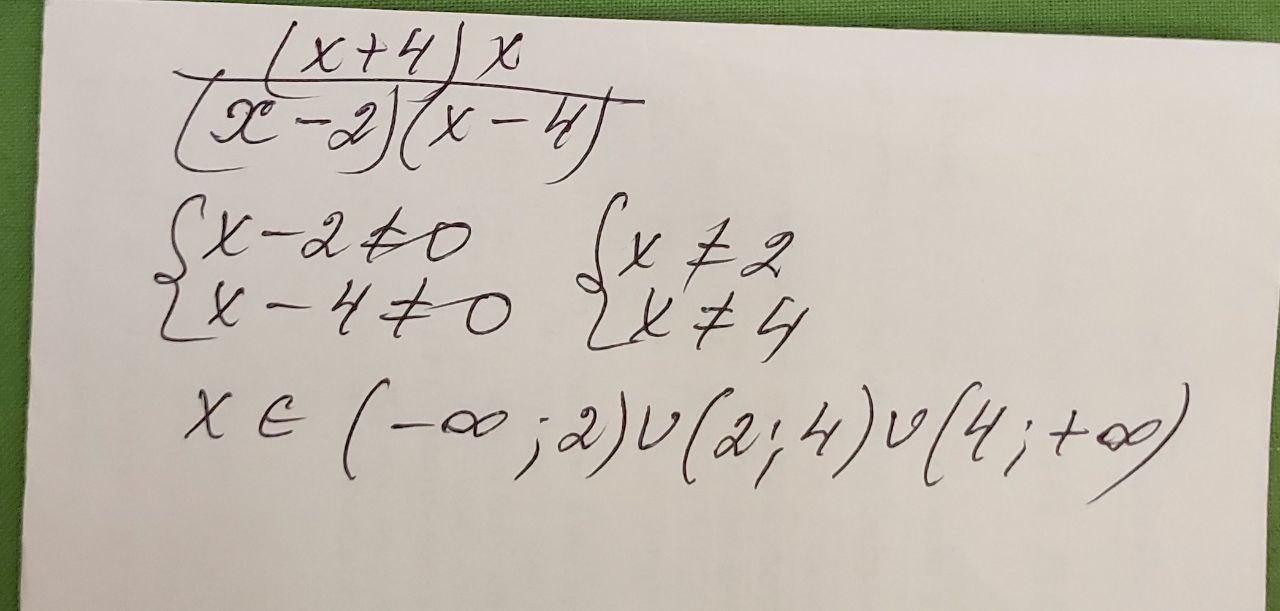 (x+4)x
(x-2)(x-4)
{x-2≠0 {x≠2
{x-4≠0 {x≠4
x ∈ (-∞;2)∪(2;4)∪(4;+∞)